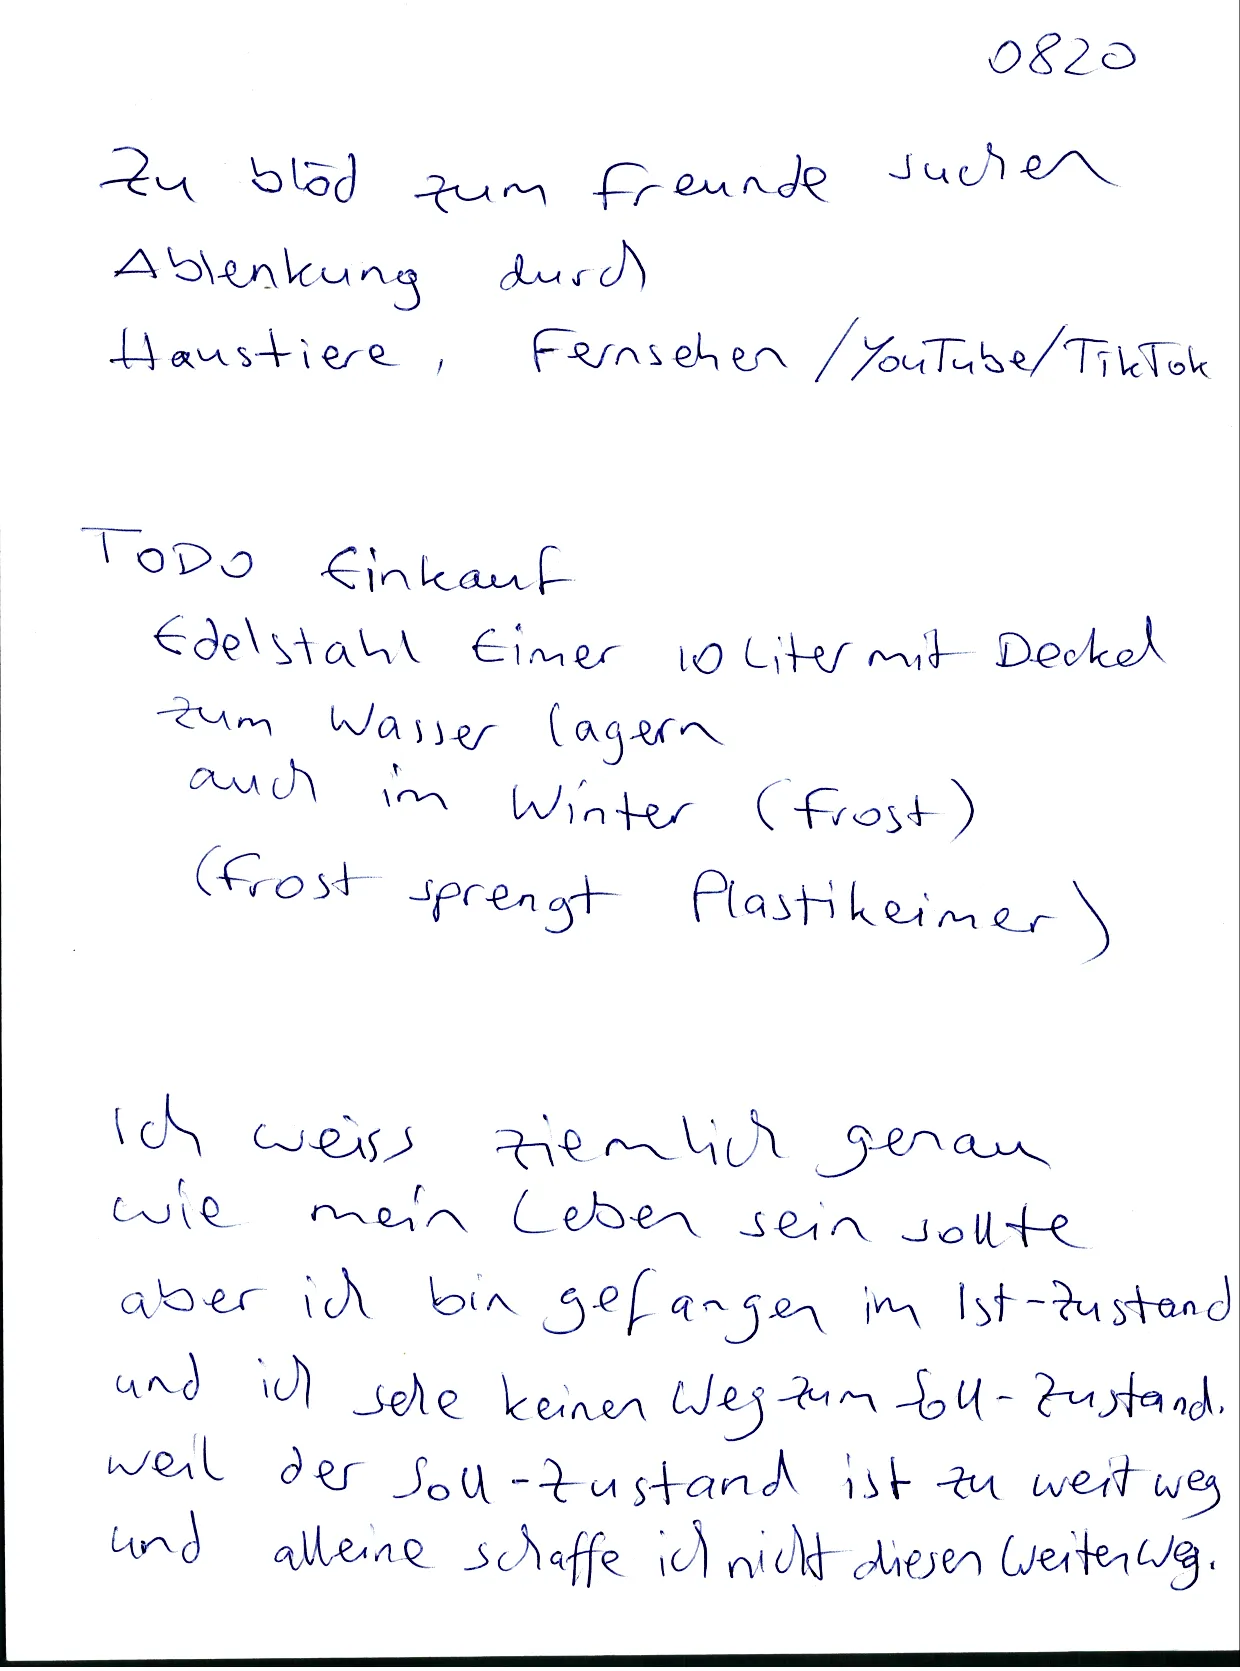 0820
Zu blöd zum Freunde suchen
Ablenkung durch
Haustiere, Fernsehen/YouTube/TikTok
TODO Einkauf
Edelstahl Eimer 10 Liter mit Deckel
zum Wasser lagern
auch im Winter (Frost)
(Frost sprengt Plastikeimer)
Ich weiss ziemlich genau
wie mein Leben sein sollte
aber ich bin gefangen im Ist-Zustand
und ich sehe keinen Weg zum Soll-Zustand.
weil der Soll-Zustand ist zu weit weg
und alleine schaffe ich nicht diesen weiten Weg.